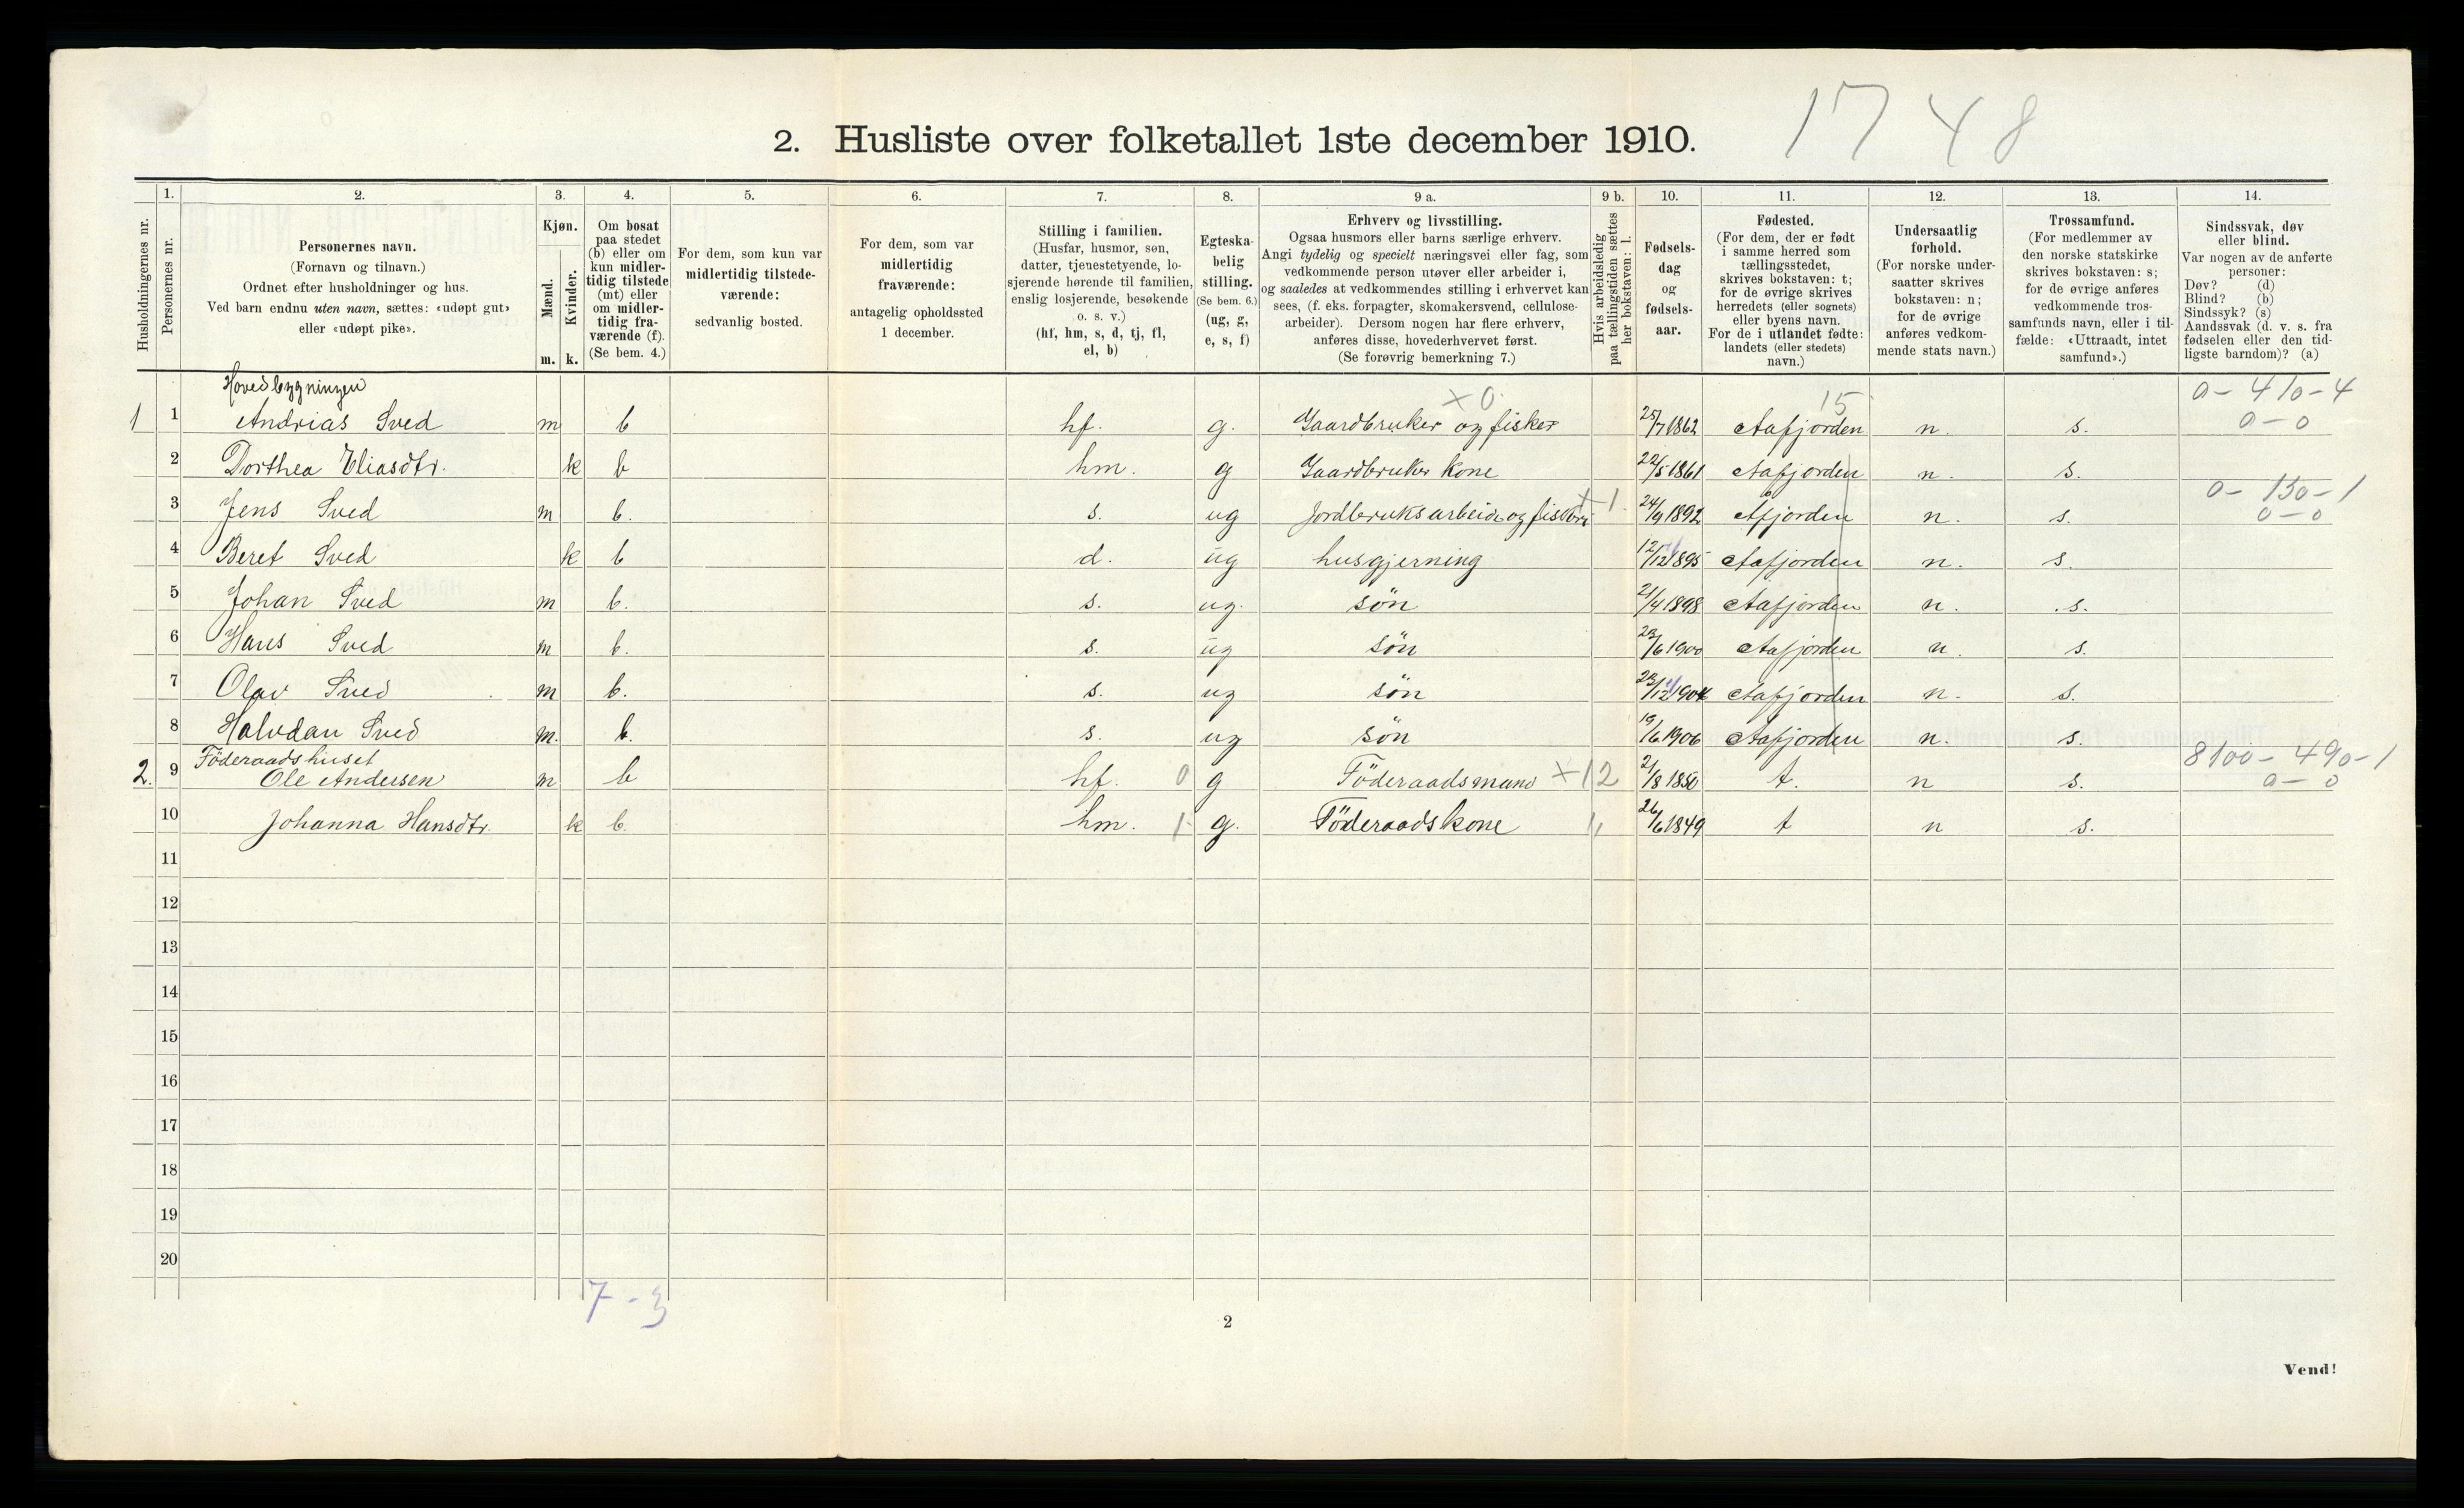 1748
2. Husliste over folketallet 1ste december 1910.
Husholdningernes nr.
1.
Personernes nr.
2.
Personernes navn.
(Fornavn og tilnavn.)
Ordnet efter husholdninger og hus.
Ved barn endnu uten navn, sættes: «udøpt gut»
eller «udøpt pike».
3.
Kjøn.
Mænd.
Kvinder.
m. k.
4.
Om bosat
paa stedet
(b) eller om
kun midler-
tidig tilstede
(mt) eller
om midler-
tidig fra-
værende (f).
(Se bem. 4.)
5.
For dem, som kun var
midlertidig tilstede-
værende:
sedvanlig bosted.
6.
For dem, som var
midlertidig
fraværende:
antagelig opholdssted
1 december.
7.
Stilling i familien.
(Husfar, husmor, søn,
datter, tjenestetyende, lo-
sjerende hørende til familien,
enslig losjerende, besøkende
o. s. v.)
(hf, hm, s, d, tj, fl,
el, b)
8.
Egteska-
belig
stilling.
(Se bem. 6.)
(ug, g,
e, s, f)
9 a.
Erhverv og livsstilling.
Ogsaa husmors eller barns særlige erhverv.
Angi tydelig og specielt næringsvei eller fag, som
vedkommende person utøver eller arbeider i,
og saaledes at vedkommendes stilling i erhvervet kan
sees, (f. eks. forpagter, skomakersvend, cellulose-
arbeider). Dersom nogen har flere erhverv,
anføres disse, hovederhvervet først.
(Se forøvrig bemerkning 7.)
9 b.
Hvis arbeidsledig
paa tællingstiden sættes
her bokstaven: l.
10.
Fødsels-
dag
og
fødsels-
aar.
11.
Fødested.
(For dem, der er født
i samme herred som
tællingsstedet,
skrives bokstaven: t;
for de øvrige skrives
herredets (eller sognets)
eller byens navn.
For de i utlandet fødte:
landets (eller stedets)
navn.)
12.
Undersaatlig
forhold.
(For norske under-
saatter skrives
bokstaven: n;
for de øvrige
anføres vedkom-
mende stats navn.)
13.
Trossamfund.
(For medlemmer av
den norske statskirke
skrives bokstaven: s;
for de øvrige anføres
vedkommende tros-
samfunds navn, eller i til-
fælde: «Uttraadt, intet
samfund».)
14.
Sindssvak, døv
eller blind.
Var nogen av de anførte
personer:
Døv? (d)
Blind? (b)
Sindssyk? (s)
Aandssvak (d. v. s. fra
fødselen eller den tid-
ligste barndom)? (a)
Hovedbygningen x 0. 15 0 - 410 - 4
1 1 Andrias Sved m b hf. g. Gaardbruker og fisker 25/7 1862 Aafjorden n. s. 0 - 0
2 Dorthea Eliasdtr. k b hm. g Gaardbruker kone 22/5 1861 Aafjorden n. s.
0 - 130 - 1
3 Jens Sved m b. s. ug Jordbruksarbeide og fiskeri x 1. 24/9 1892 Åfjorden n. s. 0 - 0
4 Beret Sved k b d. ug husgjerning 12/12 1895 Aafjorden n. s.
5 Johan Sved m b. s. ug. søn 21/4 1898 Aafjorden n. s.
6 Hans Sved m b. s. ug søn 23/6 1900 Aafjorden n. s.
7 Olav Sved m b. s. ug søn 23/12 1904 Aafjorden n. s.
8 Halvdan Sved m. b. s. ug søn 19/6 1906 Aafjorden n. s.
Föderaadshuset 8100 - 490 - 1
2. 9 Ole Andersen m b hf. 0 g Föderaadsmand x 12 21/8 1850 t. n s. 0 - 0
10 Johanna Hansdtr. k b. hm. 1 g. Föderaadskone " 26/6 1849 t n s.
11
12
13
14
15
16
17
18
19
20
7 - 3
2
Vend!